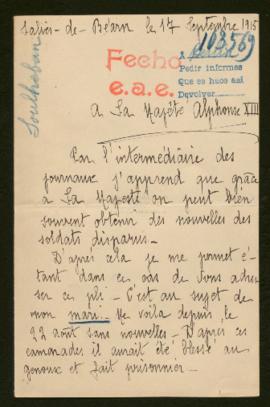 Salies-de-Béarn le 17 Septembre 1915
103569
Fecho
e.a.e.
A
Pedir informes
Que es huos así
Devolver
Soulhaban
A La Majesté Alphonse XIII
Par l'intermédiaire des
journaux j'apprend que grâce
à La Majesté on peut bien
souvent obtenir des nouvelles des
soldats disparus.
D'après cela je me permet é-
tant dans ce cas de vous adres
ser ce pli - C'est au sujet de
mon mari. Me voila depuis le
22 août sans nouvelles - D'après ces
camarades il aurait été blessé au
genoux et fait prisonnier -